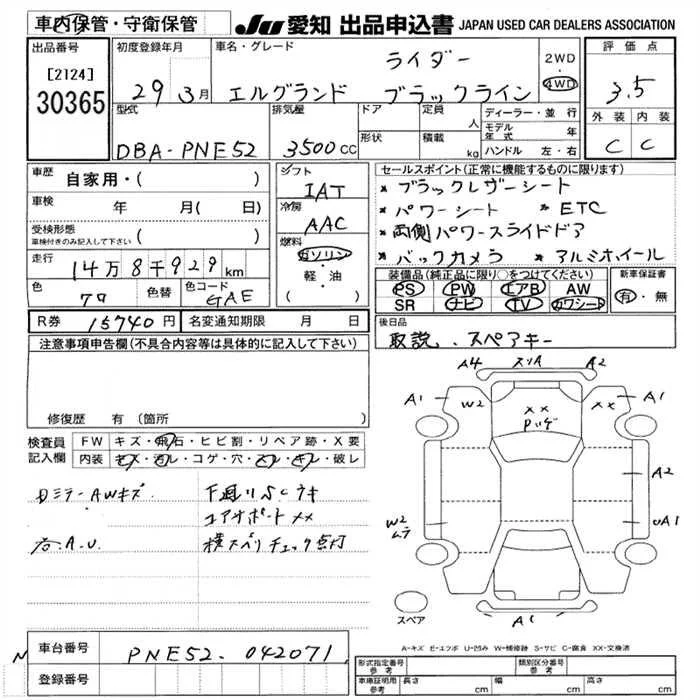 車内保管・守衛保管
JU 愛知 出品申込書 JAPAN USED CAR DEALERS ASSOCIATION
出品番号
[2124]
30365
初度登録年月
29 3月
車名・グレード
ライダー
エルグランド ブラックライン
2WD
4WD
評価点
3.5
外装 内装
C C
型式
DBA-PNE52
排気量
3500 CC
ドア
形状
定員 人
積載 kg
ディーラー・並行
モデル年式 年
ハンドル 左・右
車歴 自家用・( )
車検 年 月(日)
受検形態
車検付きのみ記入して下さい ( )
走行 14万8千929km
色 クロ 色替 色コード GAE
シフト IAT
冷房 AAC
燃料 ガソリン
軽・油
( )
セールスポイント(正常に機能するものに限ります)
* ブラックレザーシート
* パワーシート * ETC
* 両側パワースライドドア
* バックカメラ * アルミホイール
装備品(純正品に限り○をつけてください)
PS PW エアB AW
SR ナビ TV カワシート
新車保証書
有・無
R券 15740円 名変通知期限 月 日
後日品
取説、スペアキー
注意事項申告欄(不具合内容等は具体的に記入して下さい)
修復歴 有(箇所 )
検査員記入欄
FW キズ・飛石・ヒビ割・リペア跡・X要
内装 キズ・汚レ・コゲ・穴・スレ・キレ・破レ
日ミラーAWキズ 下廻りSCウキ
コアサポートXX
右.A.U. 横スベリチェック点灯
A4 スリA A2
A1 W2 XX XX A1
A2
W2 ムラ UA1
A1
スペア
A-キズ E-エクボ U-凹み W-補修跡 S-サビ C-腐食 XX-交換済
車台番号 PNE52-042071
登録番号
形式指定番号 参考
類別区分番号 参考
車庫証明用 参考 長さ cm 幅 cm 高さ cm